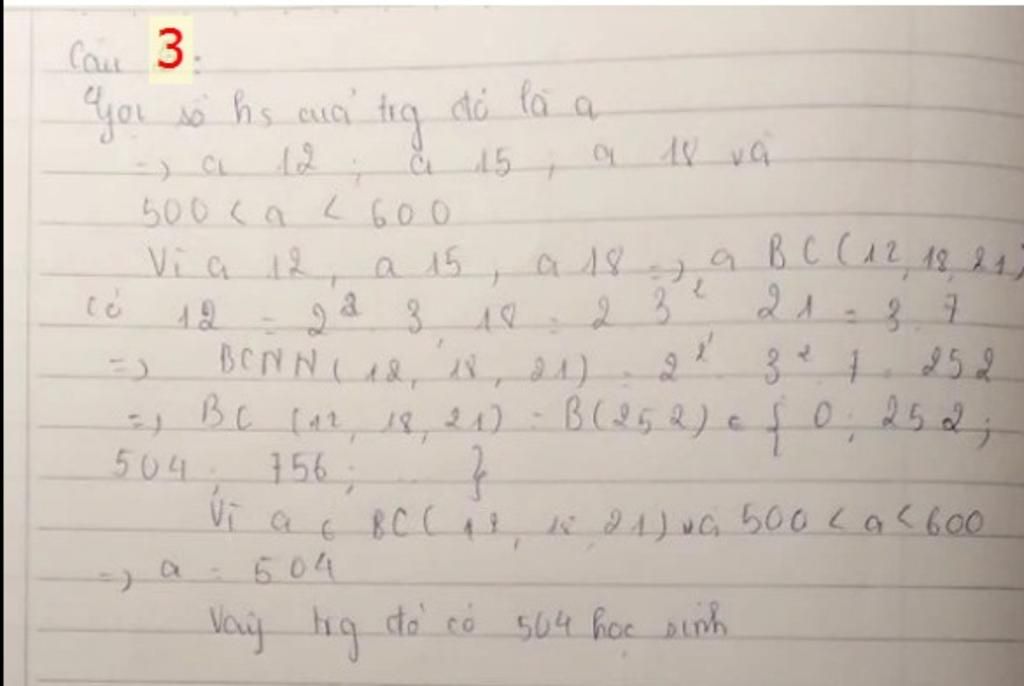 Câu 3:
Gọi số hs cuả trg đó là a
=> a 12 ; a 15 , a 18 và
500 < a < 600
Vì a 12 , a 15 , a 18 => a BC(12, 18, 21)
Có 12 = 2² 3, 18 = 2 3² 21 = 3 7
=> BCNN(12, 18, 21) = 2² 3² 7 = 252
=> BC (12, 18, 21) = B(252) ∈ { 0; 252;
504; 756; ... }
Vì a ∈ BC(12, 18, 21) và 500 < a < 600
=> a = 504
Vaỵ trg đó có 504 học sinh